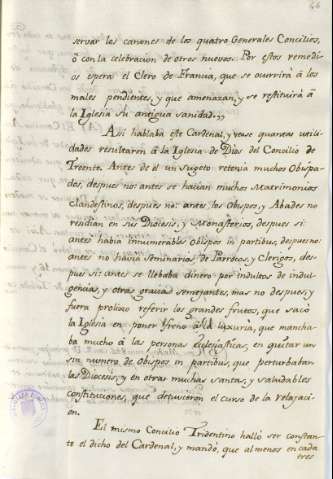 servar los canones de los quatro Generales Concilios,
ô con la celebracion de otros nuevos. Por estos remedi-
os espera el Clero de Francia, que se ocurrirá à los
males pendientes, y que amenazan, y se restituirá à
la Iglesia su antigua sanidad.,,
Asi hablaba este Cardenal, y vease quantas utili-
dades resultaron á la Iglesia de Dios del Concilio de
Trento. Antes de él un sugeto retenia muchos Obispa-
dos, despues no: antes se hacian muchos Matrimonios
Clandestinos, despues no: antes los Obispos, y Abades no
residian en sus Diocesis, y Monasterios, despues si:
antes habia innumerables Obispos in partibus, despues no:
antes no habia Seminarios de Parrocos, y Clerigos, des-
pues si: antes se llebaba dinero por indultos de indul-
gencias, y otras gracias semejantes, mas no despues, y
fuera prolixo referir los grandes frutos, que sacó
la Iglesia en poner freno á la luxuria, que mancha-
ba mucho á las personas eclesiasticas, en quitar un
sin numero de Obispos in partibus, que perturbaban
las Diocesis, y en otras muchas santas, y saludables
constituciones, que detuvieron el curso de la relajaci-
on.
El mismo Concilio Tridentino halló ser constan-
te el dicho del Cardenal, y mandó, que al menos en cada
tres